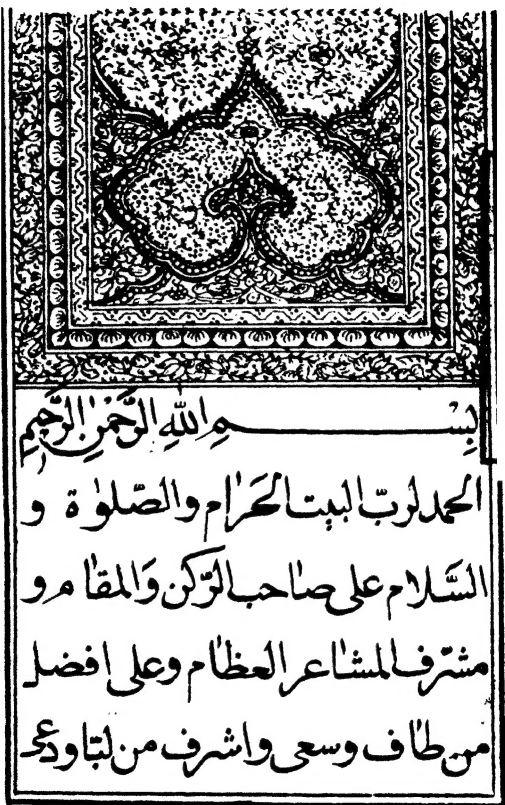 بِسْمِ اللهِ الرَّحْمٰنِ الرَّحِيمِ
الحمد لربّ البيت الحَرٰام والصّلوٰة و
السَّلام على صٰاحب الرّكن وَالمقٰام و
مشرّف المشٰاعر العظٰام وعلى افضل
من طٰاف وسعى واشرف من لبّا ودعى